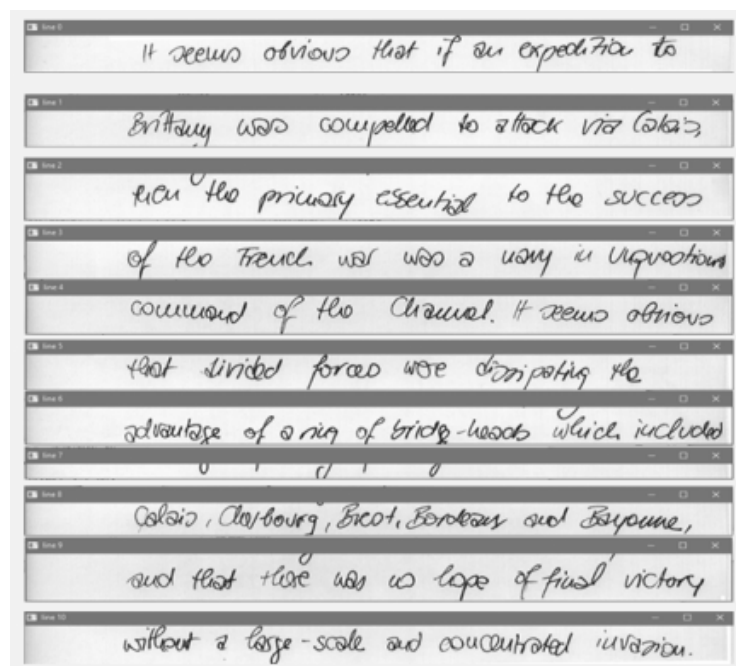 line 0
It seems obvious that if an expedition to
line 1
Brittany was compelled to attack via Calais,
line 2
then the primary essential to the success
line 3
of the French war was a navy in
line 4
command of the Channel. It seems obvious
line 5
that divided forces were dissipating the
line 6
advantage of a ring of bridge-heads which included
line 7
line 8
Calais, Cherbourg, Brest, Bordeaux and Bayonne,
line 9
and that there was no hope of final victory
line 10
without a large-scale and concentrated invasion.